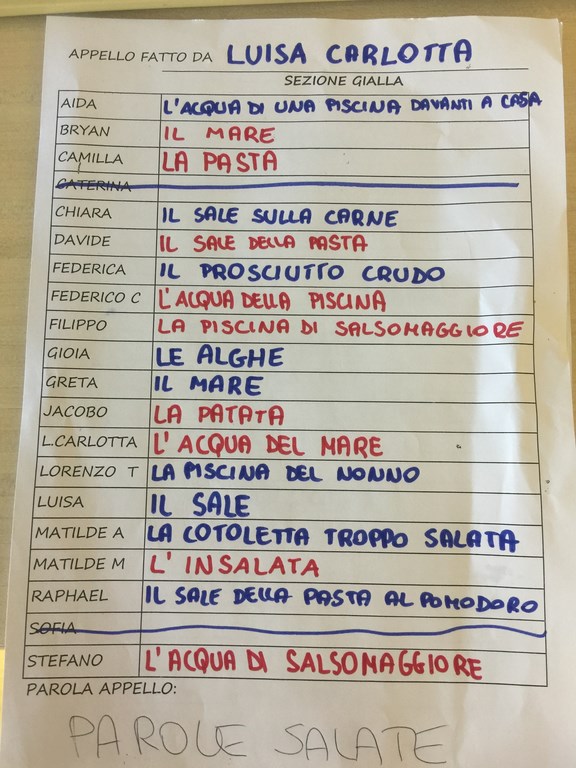 APPELLO FATTO DA LUISA CARLOTTA
SEZIONE GIALLA
AIDA L'ACQUA DI UNA PISCINA DAVANTI A CASA
BRYAN IL MARE
CAMILLA LA PASTA
CATERINA
CHIARA IL SALE SULLA CARNE
DAVIDE IL SALE DELLA PASTA
FEDERICA IL PROSCIUTTO CRUDO
FEDERICO C L'ACQUA DELLA PISCINA
FILIPPO LA PISCINA DI SALSOMAGGIORE
GIOIA LE ALGHE
GRETA IL MARE
JACOBO LA PATATA
L.CARLOTTA L'ACQUA DEL MARE
LORENZO T LA PISCINA DEL NONNO
LUISA IL SALE
MATILDE A LA COTOLETTA TROPPO SALATA
MATILDE M L'INSALATA
RAPHAEL IL SALE DELLA PASTA AL POMODORO
SOFIA
STEFANO L'ACQUA DI SALSOMAGGIORE
PAROLA APPELLO:
PAROLE SALATE